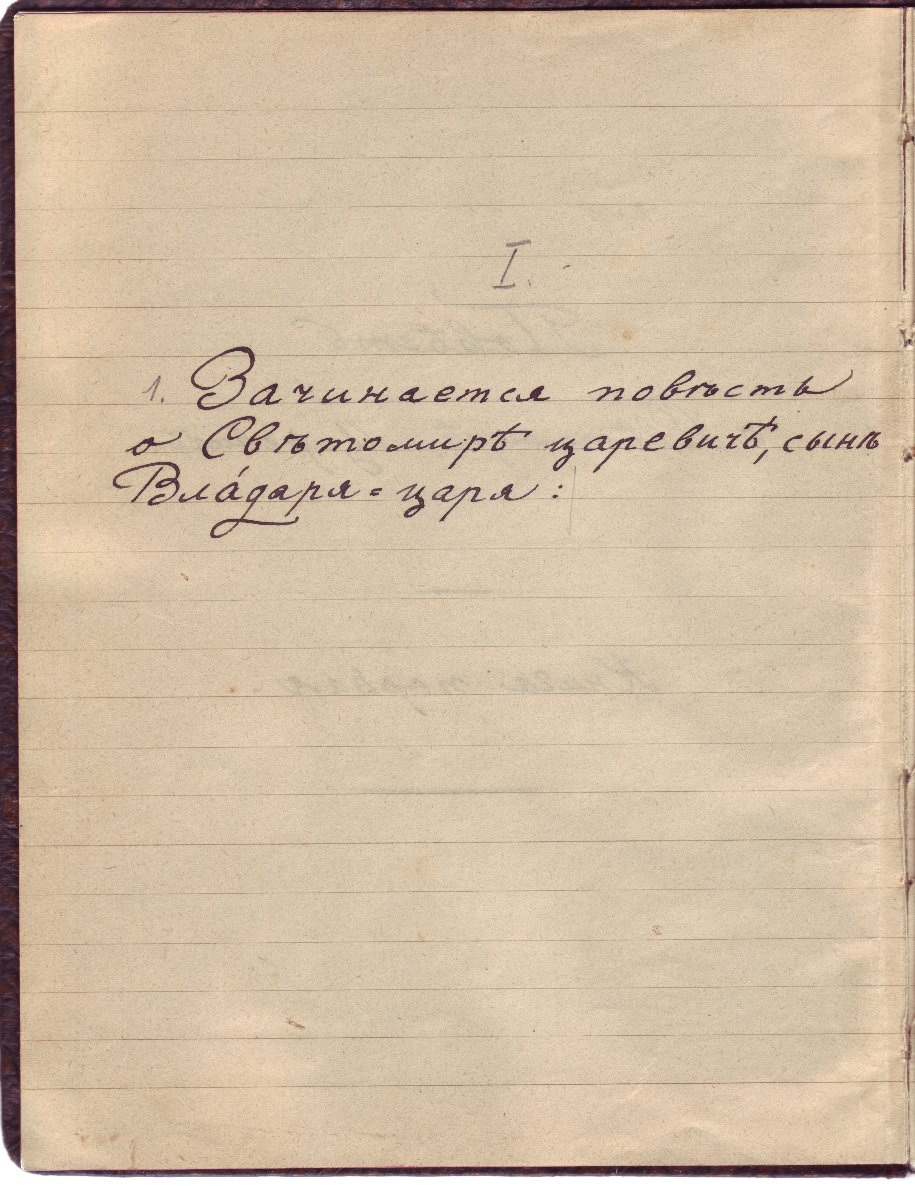 I.
1. Зачинается повѣсть
о Свѣтомирѣ царевичѣ, сынѣ
Вла́даря-царя: